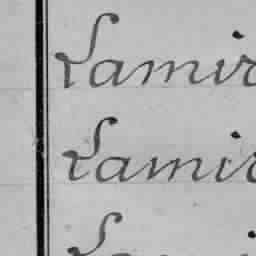 Lamir
Lamir